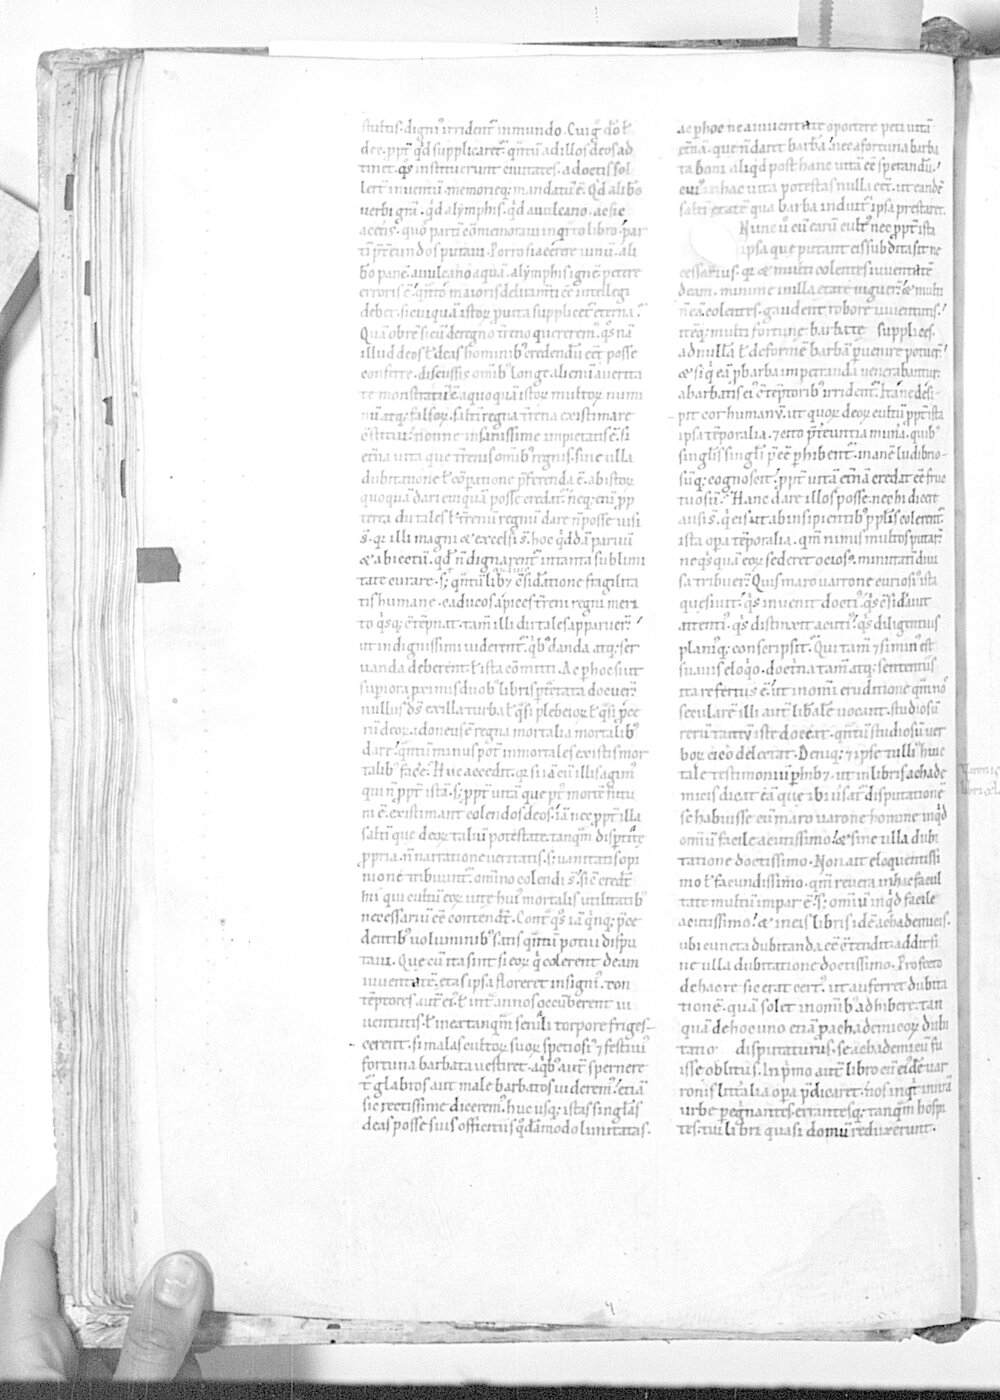 stultis. dign᷒ irrident᷒ in mundo. Cui g̊ dō ł
deę. ꝓpt̄ q̇d supplicaret᷒. q̄ntū ad illos deos ad
tinet. q̇s instituerunt ciuitates. a doctis sol
lert᷒ inuentū. memorięq; mandatū ē. Qd̄ a libo
uerbi grā. q̇d a lymphis. q̇d a uulcano. ac sic
a cęt̄is. quoꝝ partī cōmemoraui in q̇rto libro. par
tī p̄t̄eundos putaui. Porro si a cerere uinū. a li
bo panē. a uulcano aquā. a lymphis ignē petere
erroris ē. q̄nto maioris deliramti ēē intellegi
debet. si cuiquā istoꝝ ꝓ uita supplicet᷒ eterna?
Quā obrē si cū de regno t̄reno quererem᷒. q̇s nā
illud deos ł deas hominib᷒ credendū eēt posse
conferre. discussis omib᷒ longe alienū a uerita
te monstratū ē. a quoquā istoꝝ multoꝝ numi
nū atq; falsoꝝ. saltī regna t̄rena existimare
cōstitui. nonne insanissime impietatis ē. si
et̄na uita que t̄renis omib᷒ regnis. sine ulla
dubitatione ł cōparatione p̄ferenda ē. ab istoꝝ
quoquā dari cuiquā posse credat᷒. neq; eni ꝓp
terea dii tales ł t̄renū regnū dare ñ posse uisi
s̄. qꝛ illi magni & excelsi s̄. hoc q̇ddā paruū
& abiectū. qd̄ ñ dignarent᷒ in tanta sublimi
tate curare. s; q̄ntūlib; cōsidatione fragilita
tis humanę. caducos apices t̄reni regni meri
to q̇sq; cōtēpnat. tam̄ illi dii tales apparuer̄
ut indignissimi uiderent᷒. q̇b᷒ danda atq; ser
uanda deberent᷒ ł ista cōmitti. Ac p̄ hoc si ut
supiora ꝓximis duob᷒ libris p̄t̄ctata docuer̄
nullus ds̄ ex illa turba ł q̄si plebeioꝝ ł q̄si ꝓce
rū deoꝝ. idoneus ē regna mortalia mortalib᷒
dare. q̄ntū minus pot̄ immortales ex istis mor
talib᷒ facē. Huc accedit. qꝛ si iā cū illis agim᷒
qui ñ ꝓpt̄ istā. s; ꝓpt̄ uitā que p᷒ mortē futu
ra ē. existimant colendos deos. iā nec ꝓpt̄ illa
saltī que deoꝝ taliū potestate. tanqm̄ disptita
ꝓpria. ñ ratione ueritatis. s; uanitatis opi
nione tribuunt᷒. omino colendi s̄. sic credt̄
hi qui cultū eoꝝ uite hui᷒ mortalis utilitatib᷒
necessariū ēē contendt̄. Cont᷒ q̇s iā q̇nq; p̄ce
dentib᷒ uoluminib᷒ satis q̄ntū potui dispu
taui. Que cū ita sint si eoꝝ q̇ colerent deam
iuuentatē. etas ipsa floreret insigni᷒. con
tēptores aut̄ ei᷒ ł intᷓ annos occūberent iu
uentutis. ł in ea tanqm̄ senili torpore friges
cerent. si malas cultoꝝ suoꝝ speciosi᷒ ⁊ festiui᷒
fortuna barbata uestiret. a q̇b᷒ aut̄ spernere
t᷒ glabros aut male barbatos uiderem᷒. etiā
sic rectissime dicerem᷒. huc usq; istas singlas
deas posse suis officiis q̇dāmodo limitatas.
ac p̄ hoc nec a iuuentate oportere peti uitā
et̄nā. que ñ daret barbā. nec a fortuna barba
ta boni aliq̇d post hanc uitā ēē sperandū.
cui᷒ in hac uita potestas nulla eēt. ut eandē
saltī etatē qua barba induit᷒ ipsa prestaret.
Nunc ū cū earū cult᷒ nec ꝓpt̄ ista
ipsa que putant eis subdita sit ne
cessarius. qꝛ & multi colentes iuuentatē
deam. minime in illa etate uiguer̄. & multi
ñ eā colentes. gaudent robore iuuentutis.
itēq; multi fortune barbate supplices.
ad nullā ł deformē barbā puenire potuer̄
& si q̇ eā ꝓ barba impetranda uenerabantur.
a barbatis ei᷒ cōtēptorib᷒ irrident᷒. Itane desi
pit cor humanū. ut quoꝝ deoꝝ cultū ꝓpt̄ ista
ipsa tēporalia. ⁊ cito p̄t̄euntia mun̄a. quib᷒
singlis singli p̄ēē phibent᷒. inanē ludibrio
sūq; cognoscit. ꝓpt̄ uitā et̄nā credat ēē fruc
tuosū. Hanc dare illos posse. nec hi dicere
ausi s̄. q̇ eis ut ab insipientib᷒ pplis colerent᷒.
ista opa tēporalia. qm̄ nimis multos putar̄
ne q̇squā eoꝝ sederet ociosꝰ. minutatī diui
sa tribuer̄. Quis maro uarrone curiosi᷒ ista
quesiuit. q̇s inuenit docti᷒. q̇s cōsidauit
attenti᷒. q̇s distinxit acuti᷒. q̇s diligentius
pleni᷒q; conscripsit. Qui tam̄ ⁊ si min᷒ est
suauis eloq̇o. doct̄na tam̄ atq; sententiis
ita refertus ē. ut in omi eruditione qm̄ nos
secularē illi aut̄ libalē uocant. studiosū
rerū tantū iste doceat. q̄ntū studiosū uer
boꝝ cicero delectat. Deniq; ⁊ ipse tulli᷒ huic
tale testimoniū phib;. ut in libris achade
micis dicat eā que ibi uersat᷒ disputationē
se habuisse cū maro uarone homine inq̇d
omiū facile acutissimo. & sine ulla dubi
tatione doctissimo. Non ait eloquentissi
mo ł facundissimo. qm̄ reuera in hac facul
tate multū impar ē. s; omiū inq̇d facile
acutissimo. & in eis libris id ē achademicis.
ubi cuncta dubitanda ēē cōtendit. addit si
ne ulla dubitatione doctissimo. Profecto
de hac re sic erat cert᷒. ut auferret dubita
tionē. quā solet in omib᷒ adhibere. tan
quā de hoc uno etiā ꝓ achademicoꝝ dubi
tatio disputaturus. se achademicū fu
isse oblitus. In pꝛimo aut̄ libro cū ei᷒dē uar
ronis litt̄alia opa p̄dicaret. nos inq̇t in n̄ra
urbe pegrinantes. errantesq; tanqm̄ hospi
tes. tui libri quasi domū reduxerunt.